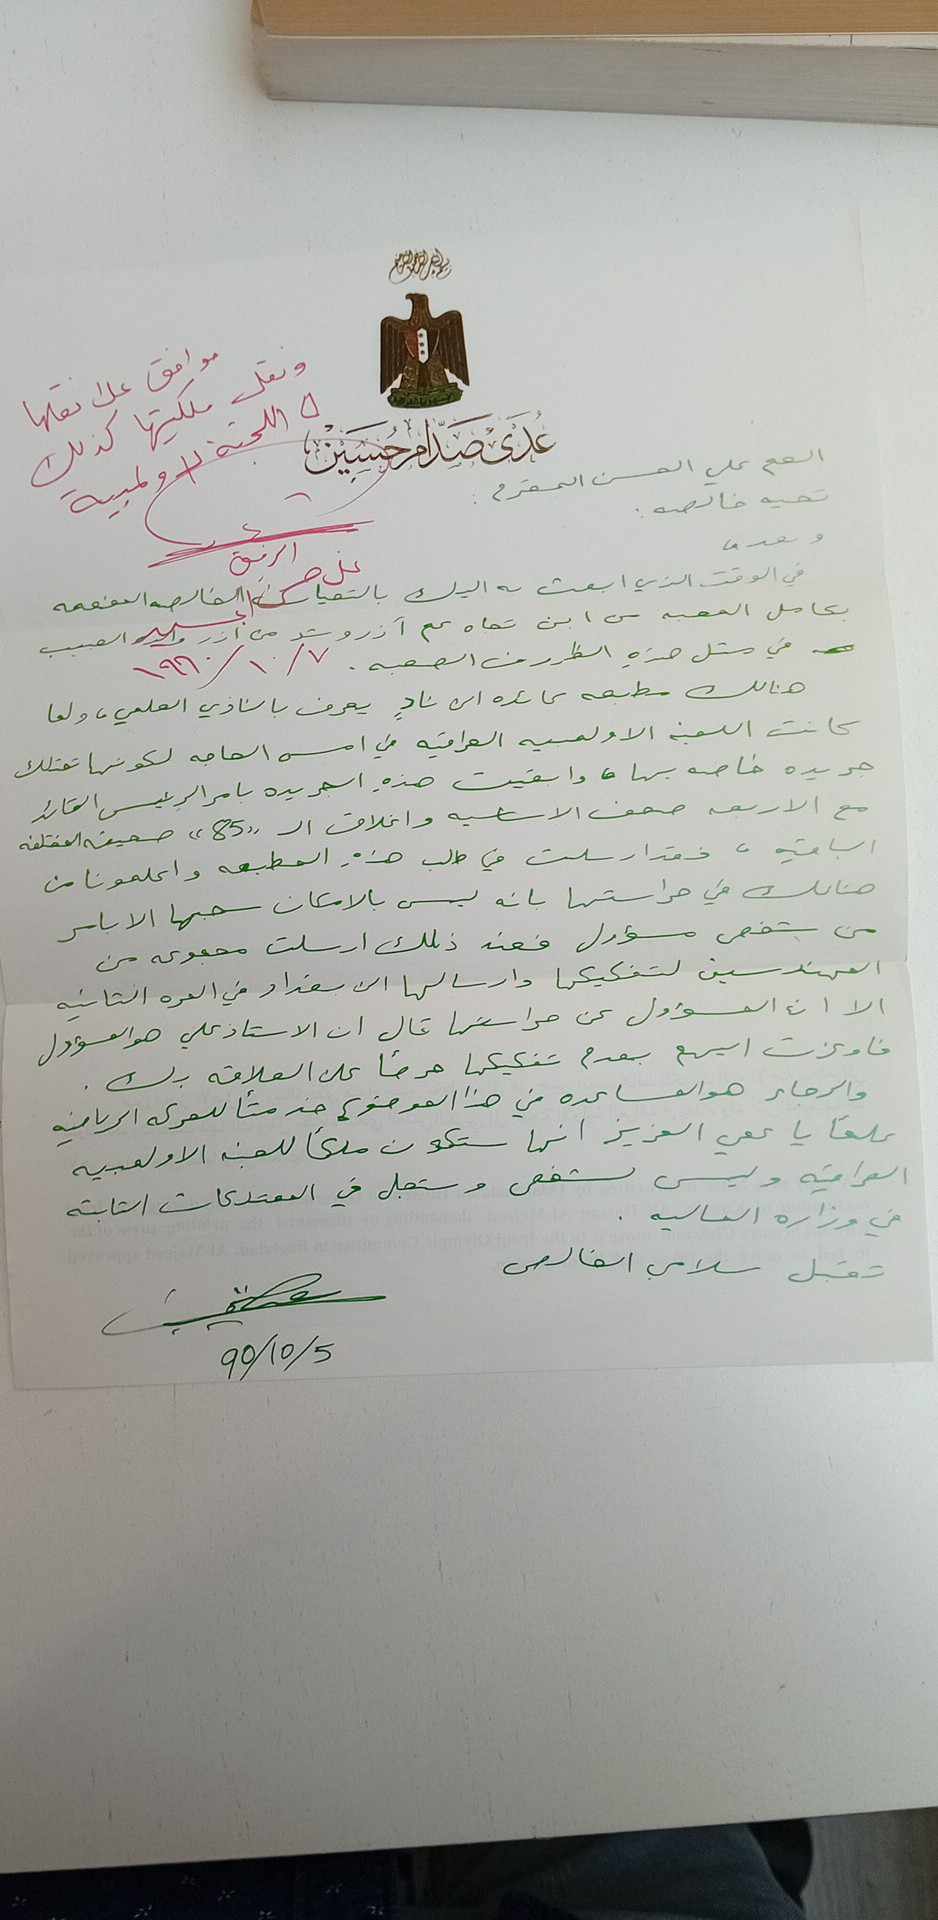 بسم الله الرحمن الرحيم
عُدَيّ صَدّام حُسَيْن
موافق على نقلها
ونقل ملكيتها كذلك
الى اللجنة الاولمبية
الرفيق
علي حسن المجيد
١٩٩٠/١٠/٧
العم علي الحسن المحترم :
تحيه خالصه :
وبعد ،
في الوقت الذي ابعث به اليك بالتحيات الخالصه المفعمه
بكامل المحبه من ابن تجاه عم آزر و من آزر والده الحبيب
في مثل هذه الظروف الصعبه .
هنالك مطبعه عائده الى نادٍ يعرف بالنادي العلمي ، ولما
كانت اللجنة الاولمبيه العراقيه في امس الحاجه لكونها تمتلك
جريده خاصه بها ، وابقيت هذهِ الجريده بامر الرئيس القائد
مع الاربعه صحف الاساسيه واغلاق الـ «85» صحيفه المختلفه
الباقيه ، فقد ارسلت في طلب هذهِ المطبعه واعلمونا من
هنالك في حراستها بانه ليس بالامكان سحبها الا بامر
من شخص مسؤول فعند ذلك ارسلت مجموعه من
المهندسين لتفكيكها وارسالها الى بغداد في المره الثانيه
الا ان المسؤول عن حراستها قال ان الاستاذ علي هو المسؤول
فاوعزت اليهم بعدم تفكيكها حرصاً على العلاقه بك .
والرجاء هو المساعده في هذا الموضوع خدمتاً للحركه الرياضيه
علماً يا عمي العزيز انها ستكون ملكاً للجنه الاولمبيه
العراقيه وليس لشخص وستجل في الممتلكات الثابته
في وزاره الماليه .
تقبل سلامي الخالص
90/10/5